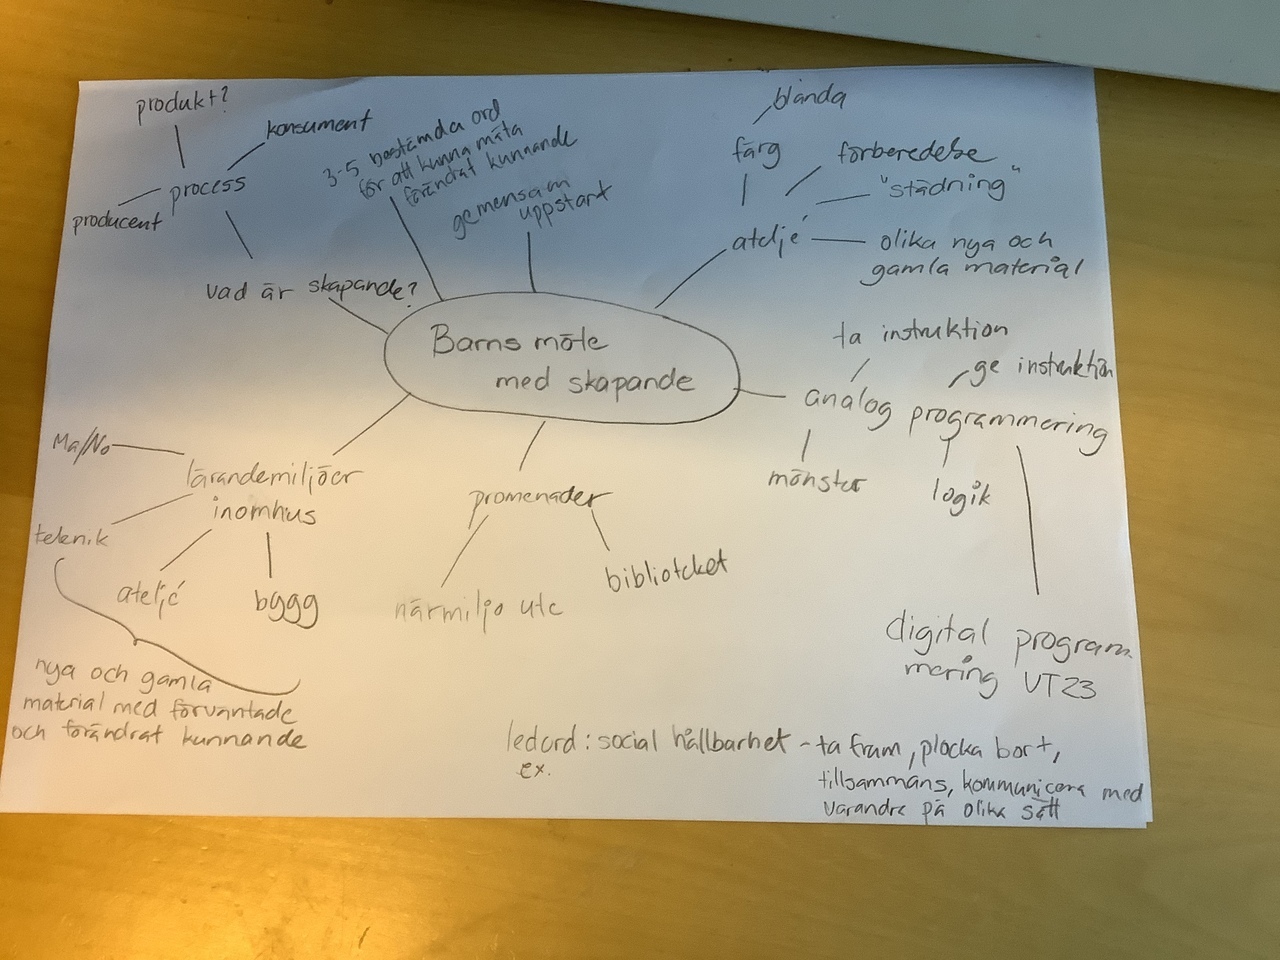 produkt?
konsument
process
producent
vad är skapande?
3-5 bestämda ord
för att kunna mäta
förändrat kunnande
gemensam
uppstart
blanda
färg
förberedelse
"städning"
ateljé
olika nya och
gamla material
Barns möte
med skapande
ta instruktion
ge instruktion
analog programmering
mönster
logik
digital program-
mering VT23
Ma/No
lärandemiljöer
inomhus
teknik
ateljé
bygg
nya och gamla
material med förväntade
och förändrat kunnande
promenader
närmiljö ute
biblioteket
ledord: social hållbarhet - ta fram, plocka bort,
ex.
tillsammans, kommunicera med
varandra på olika sätt